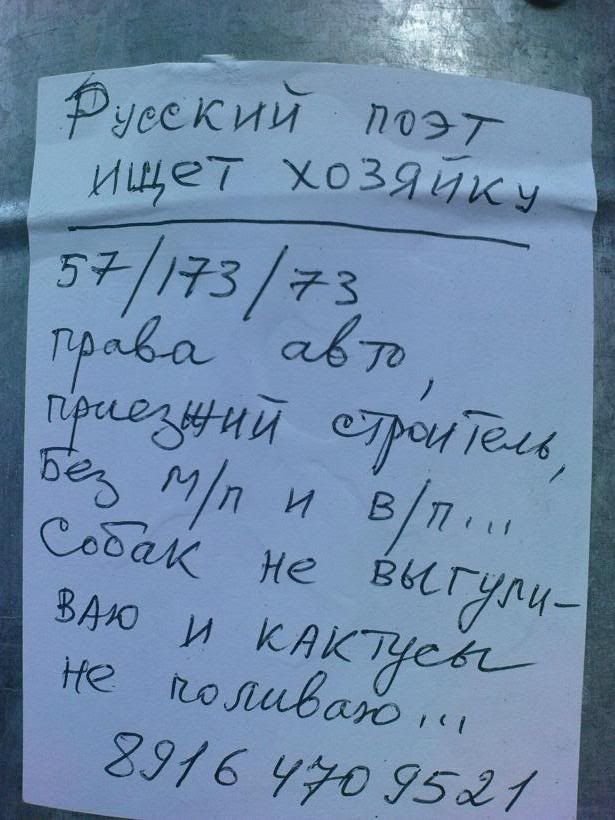 Русский поэт
ищет хозяйку
57/173/73
права авто,
приезжий строитель,
Без м/п и в/п...
Собак не выгули-
ваю и кактусы
не поливаю...
8916 470 9521